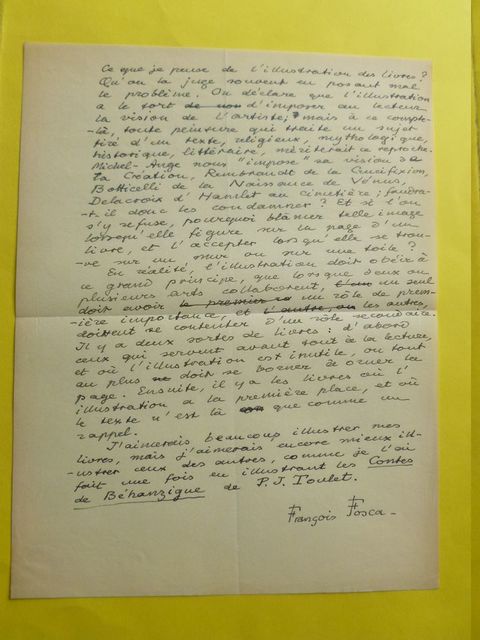 Ce que je pense de l'illustration des livres ?
Qu'on la juge souvent en posant mal
le problème. On déclare que l'illustration
a le tort de non d'imposer au lecteur
la vision de l'artiste; mais à ce compte-
-là, toute peinture qui traite un sujet
tiré d'un texte, religieux, mythologique,
historique, littéraire, mériterait ce reproche.
Michel-Ange nous "impose" sa vision de
la Création, Rembrandt de la Crucifixion,
Botticelli de la Naissance de Vénus,
Delacroix d'Hamlet au cimetière; faudra-
-t-il donc les condamner ? Et si l'on
s'y refuse, pourquoi blâmer telle image
lorsqu'elle figure sur la page d'un
livre, et l'accepter lorsqu'elle se trou-
-ve sur un mur ou sur une toile ?
En réalité, l'illustration doit obéir à
ce grand principe, que lorsque deux ou
plusieurs arts collaborent, l'un un seul
doit avoir le premier un rôle de prem-
-ière importance, et l'autre, ou les autres,
doivent se contenter d'un rôle secondaire.
Il y a deux sortes de livres : d'abord
ceux qui servent avant tout à la lecture,
et où l'illustration est inutile, ou tout
au plus doit se borner à orner la
page. Ensuite, il y a les livres où l'
illustration a la première place, et où
le texte n'est là que comme un
rappel.
J'aimerais beaucoup illustrer mes
livres, mais j'aimerais encore mieux ill-
-ustrer ceux des autres, comme je l'ai
fait une fois en illustrant les Contes
de Béhanzigue de P.J. Toulet.
François Fosca-